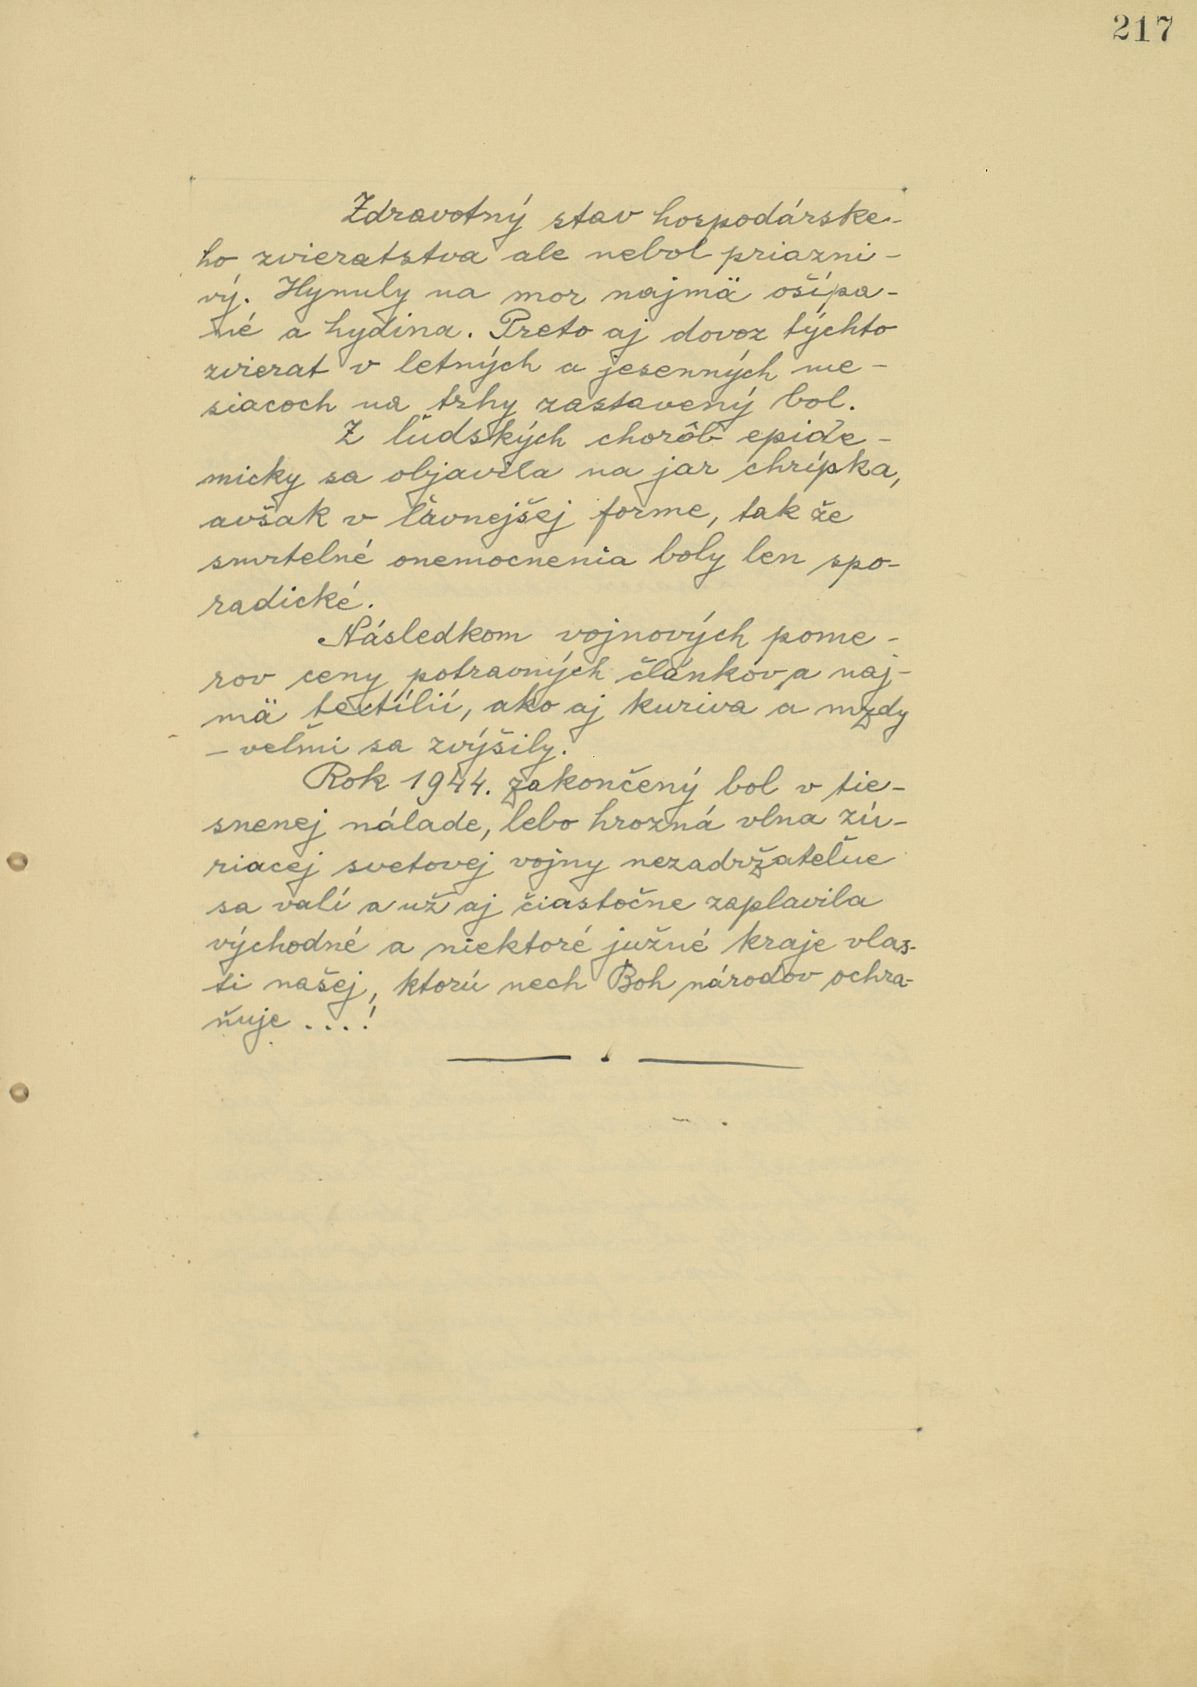 217
Zdravotný stav hospodárske-
ho zvieratstva ale nebol priazni-
vý. Hynuly na mor najmä ošípa-
né a hydina. Preto aj dovoz týchto
zvierat v letných a jesenných me-
siacoch na trhy zastavený bol.
Z ľudských chorôb epide-
micky sa objavila na jar chrípka,
avšak v ľavnejšej forme, tak že
smrtelné onemocnenia boly len spo-
radické.
Následkom vojnových pome-
rov ceny potravných článkov, a naj-
mä textílií, ako aj kuriva a mzdy
– veľmi sa zvýšily.
Rok 1944. zakončený bol v tie-
snenej nálade, lebo hrozná vlna zú-
riacej svetovej vojny nezadržateľne
sa valí a už aj čiastočne zaplavila
východné a niektoré južné kraje vlas-
ti našej, ktorú nech Boh národov ochra-
ňuje ....!